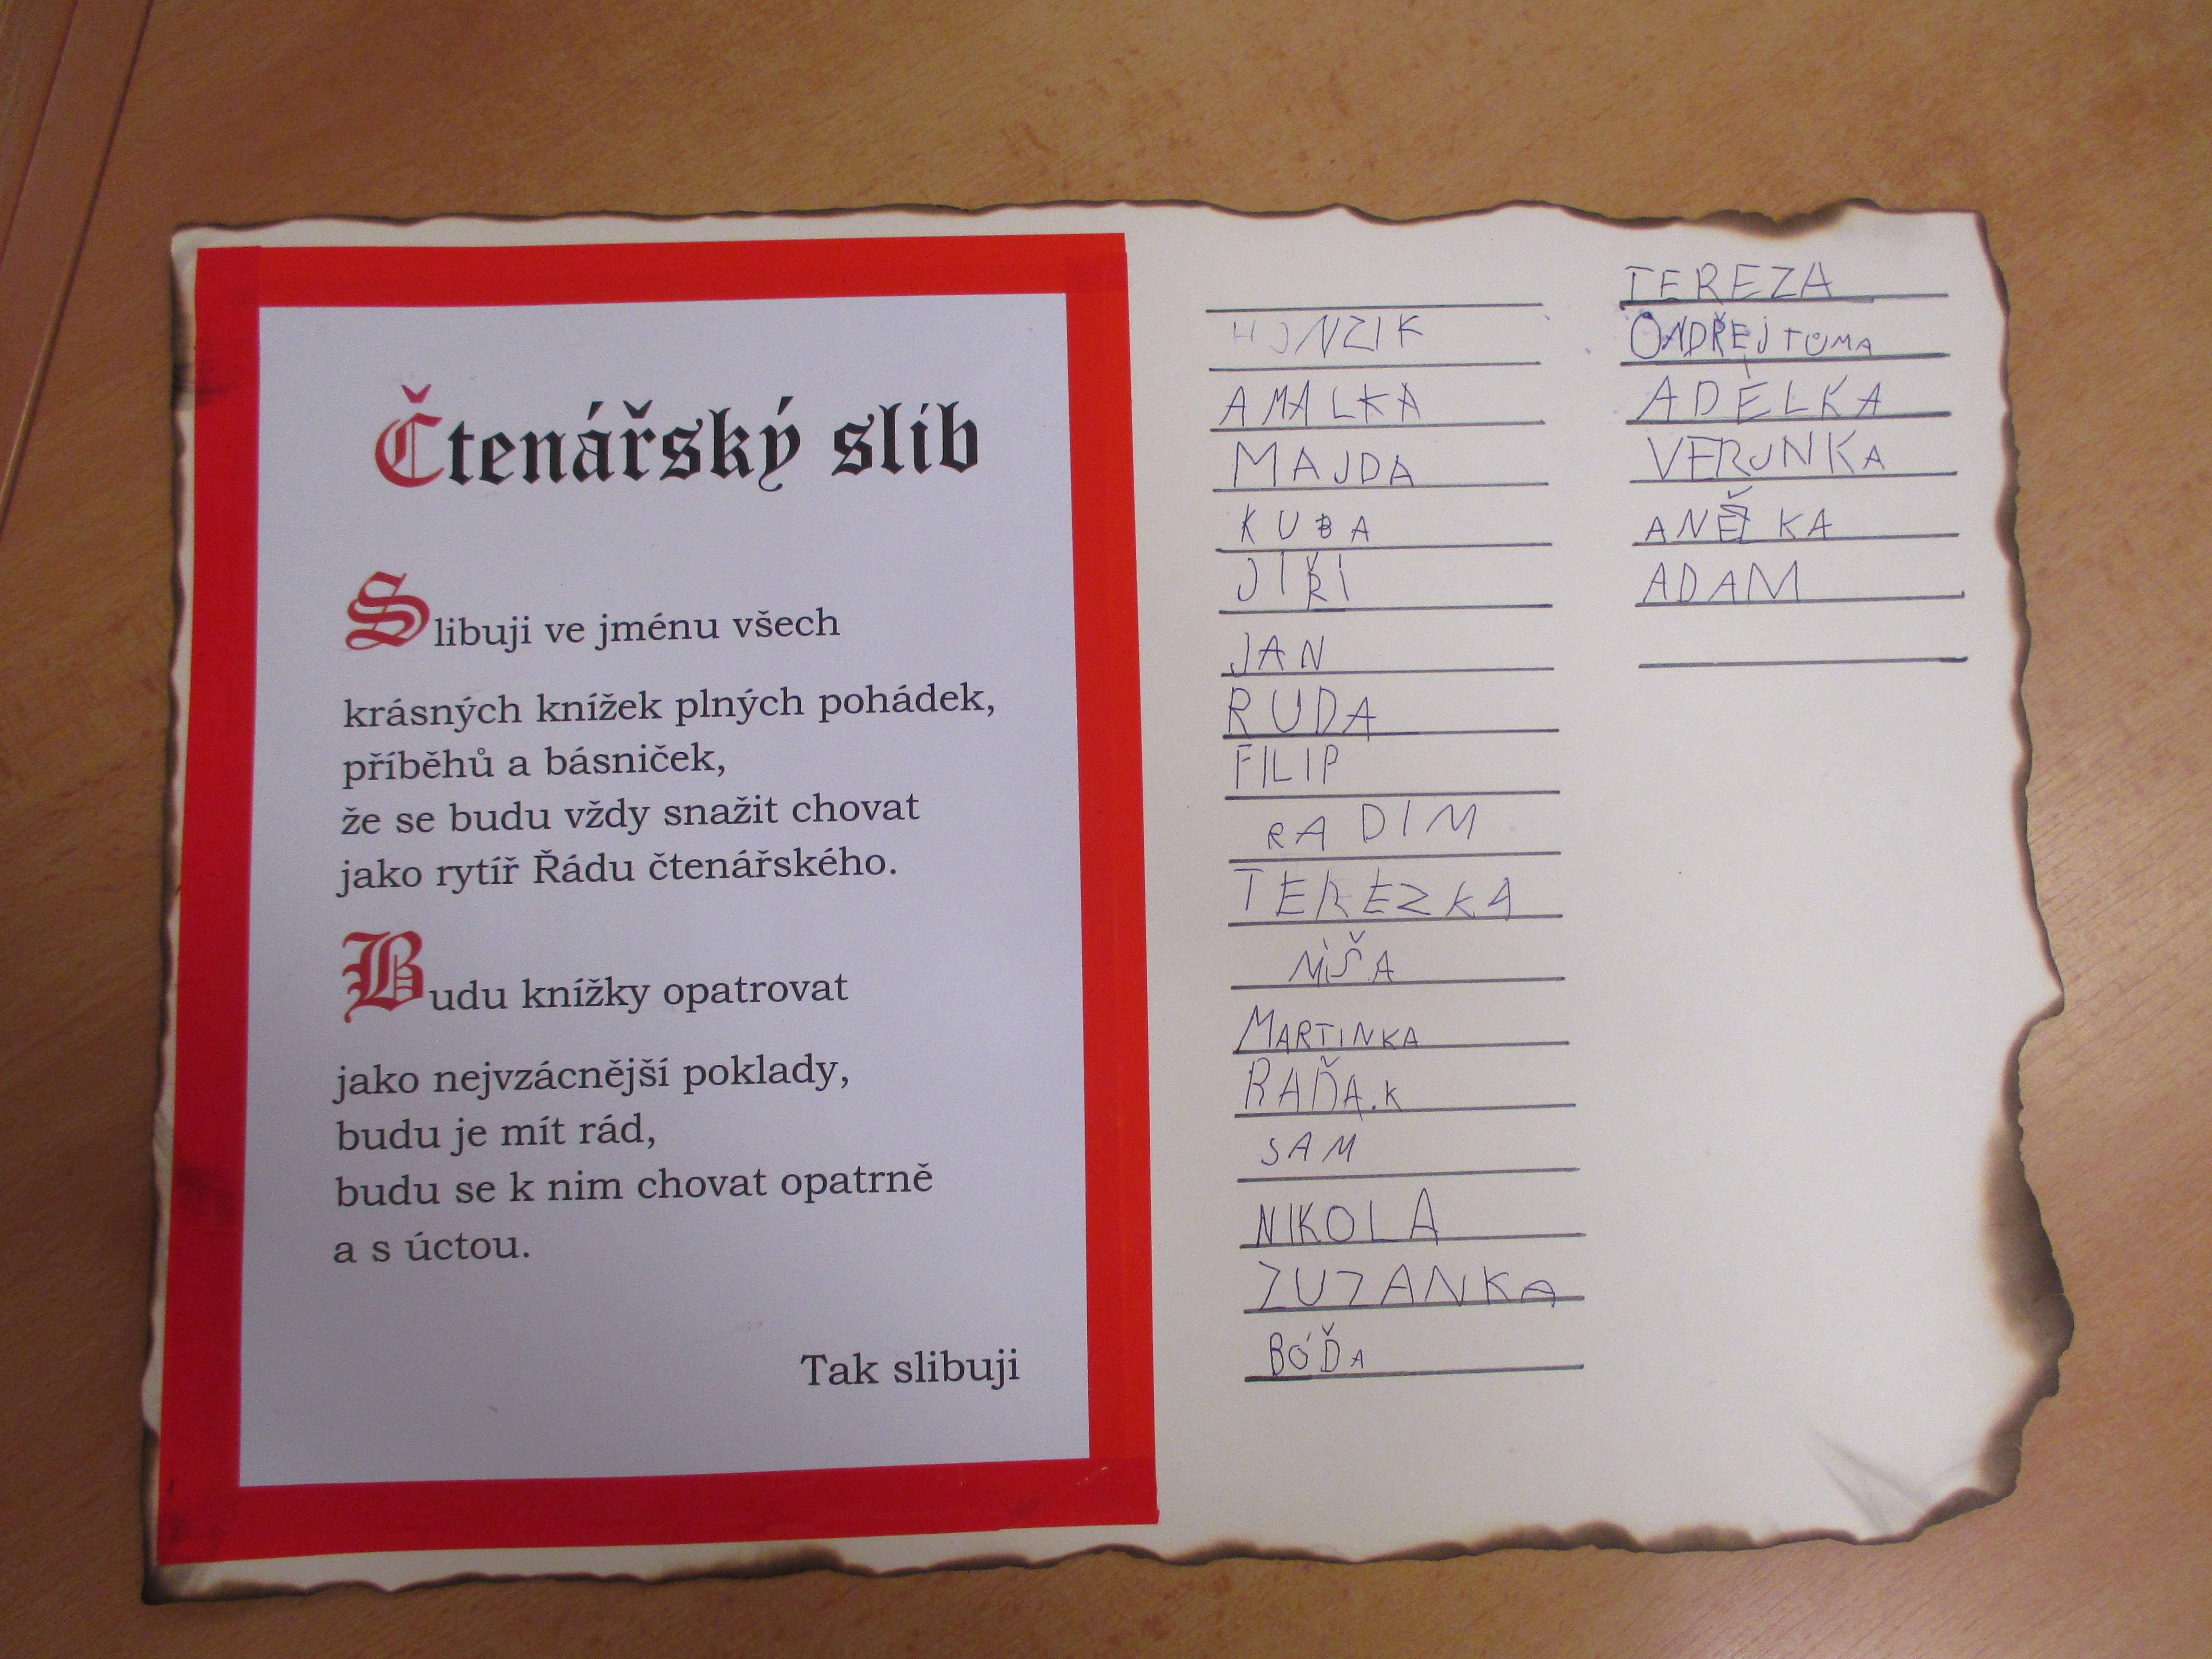 Čtenářský slib
Slibuji ve jménu všech
krásných knížek plných pohádek,
příběhů a básniček,
že se budu vždy snažit chovat
jako rytíř Řádu čtenářského.
Budu knížky opatrovat
jako nejvzácnější poklady,
budu je mít rád,
budu se k nim chovat opatrně
a s úctou.
Tak slibuji
HONZIK
AMALKA
MAJDA
KUBA
JIŘÍ
JAN
RUDA
FILIP
RADIM
TEREZKA
MÍŠA
MARTINKA
RAĎA.K
SAM
NIKOLA
ZUZANKA
BÓĎA
TEREZA
ONDŘEJ TUMA
ADÉLKA
VERUNKA
ANEŽKA
ADAM